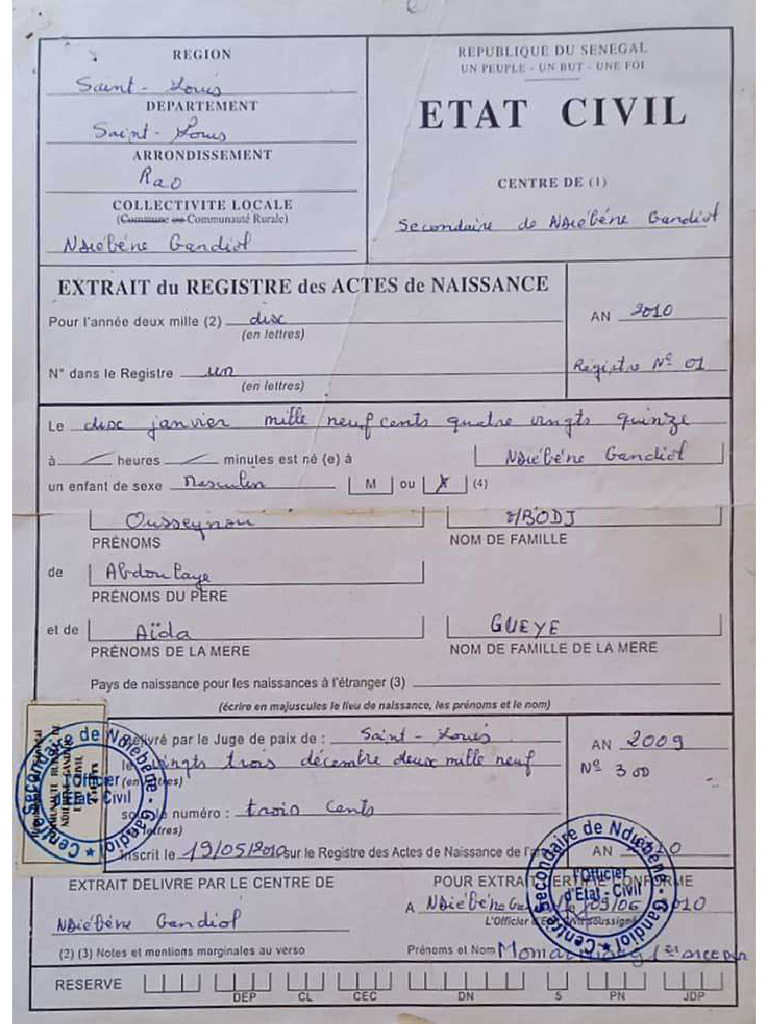 REGION
Saint - Louis
DEPARTEMENT
Saint - Louis
ARRONDISSEMENT
Rao
COLLECTIVITE LOCALE
(Commune ou Communauté Rurale)
Ndiébéne Gandiol
REPUBLIQUE DU SENEGAL
UN PEUPLE - UN BUT - UNE FOI
ETAT CIVIL
CENTRE DE (1)
Secondaire de Ndiébéne Gandiol
EXTRAIT du REGISTRE des ACTES de NAISSANCE
Pour l'année deux mille (2) disc
(en lettres)
AN 2010
N° dans le Registre un
(en lettres)
Régistre N° 01
Le disc janvier mille neuf cents quatre vingts quinze
à heures minutes est né (e) à Ndiébéne Gandiol
un enfant de sexe Masculin M ou X (4)
Ousseynou MBODJ
PRÉNOMS NOM DE FAMILLE
de Abdoulaye
PRÉNOMS DU PÈRE
et de Aïda GUEYE
PRÉNOMS DE LA MERE NOM DE FAMILLE DE LA MERE
Pays de naissance pour les naissances à l'étranger (3)
(écrire en majuscules le lieu de naissance, les prénoms et le nom)
Délivré par le Juge de paix de : Saint - Louis
AN 2009
le vingts trois décembre deux mille neuf
(en lettres)
N° 300
sous le numéro : trois cents
lettres)
Inscrit le 19/05/2010 sur le Registre des Actes de Naissance de l'
AN
Centre Secondaire de Ndiébène - Gandiol
l'Officier
d'Etat - Civil
ETAT CIVIL
EXTRAIT DELIVRE PAR LE CENTRE DE
Ndiébéne Gandiol
(2) (3) Notes et mentions marginales au verso
POUR EXTRAIT CERTIFIE CONFORME
A Ndiébéne le 09/06/2010
L'Officier d'Etat soussigné
Prénoms et Nom
Centre Secondaire de Ndiébène - Gandiol
l'Officier
d'Etat - Civil
RESERVE
DEP CL CEC DN S PN JDP